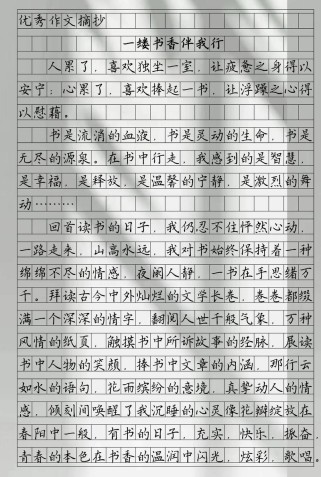 优秀作文摘抄
一缕书香伴我行
人累了，喜欢独坐一室，让疲惫之身得以
安宁；心累了，喜欢捧起一书，让浮躁之心得
以慰藉。
书是流淌的血液，书是灵动的生命，书是
无尽的源泉。在书中行走，我感到的是智慧，
是幸福，是释放，是温馨的宁静，是激烈的舞
动………
回首读书的日子，我仍忍不住怦然心动，
一路走来，山高水远，我对书始终保持着一种
绵绵不尽的情感，夜阑人静，一书在手思绪万
千。拜读古今中外灿烂的文学长卷，卷卷都缀
满一个深深的情字，翻阅人世千般气象，万种
风情的纸页，触摸书中所诉故事的经脉，展读
书中人物的笑颜，捧书中文章的内涵，那行云
如水的语句，花雨缤纷的意境，真挚动人的情
感，倾刻间唤醒了我沉睡的心灵像花瓣绽放在
春阳中一般，有书的日子，充实，快乐，振奋，
青春的本色在书香的温润中闪光，炫彩，歌唱。